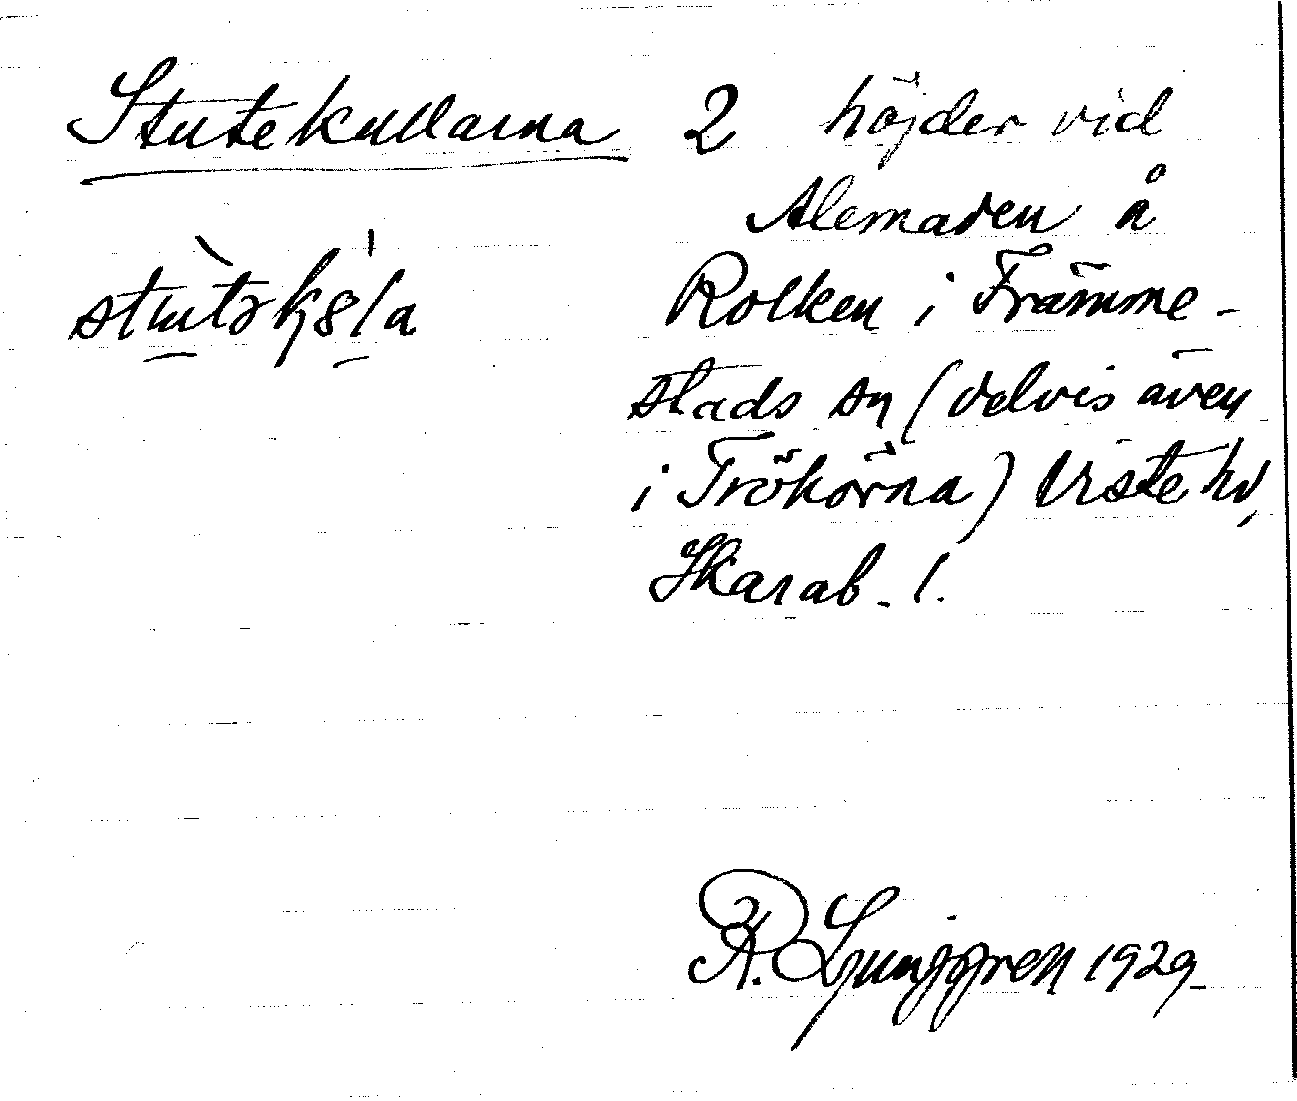 Stutekullarna 2 höjder vid
Alemaden å
Rolken i Främme-
stads sn (delvis även
i Trökörna) Viste hd,
Skarab. l.
R. Ljunggren 1929